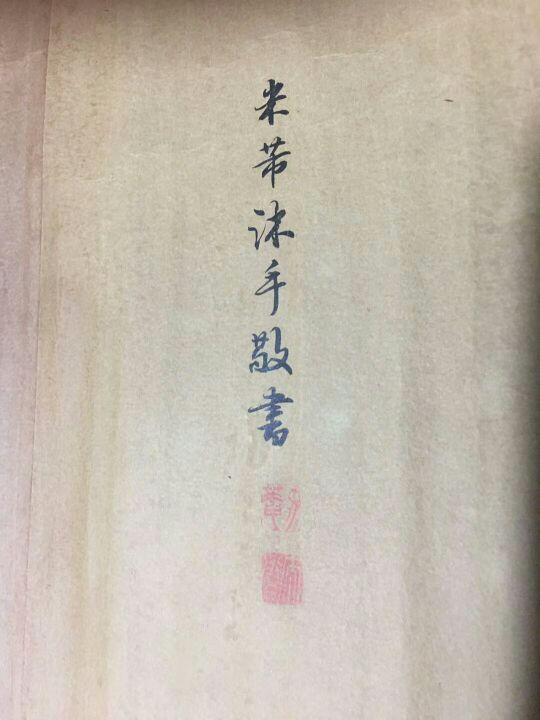 米芾沐手敬書